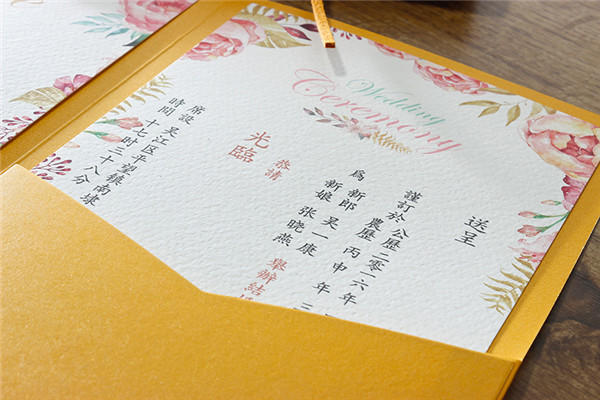 Wedding
Ceremony
送呈
謹訂於 公歷 二零一六年
農歷 丙申年 三
爲 新郎 吴一康
新娘 张晓燕 舉辦結
恭請
光臨
席設 吴江区平望鎮南埭
時間 十七时三十八分